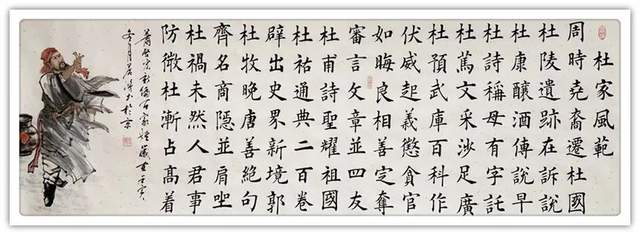 杜家風範
周時堯裔遷杜國
杜陵遺跡在訴說
杜康釀酒傳說早
杜詩稱母有字託
杜篤文采沙足廣
杜預武庫百科作
伏威起義懲貪官
如晦良相善定奪
審言文章並四友
杜甫詩聖耀祖國
杜祐通典二百卷
辟出史界新境郭
杜牧晚唐善絕句
齊名商隱並肩坐
杜禍未然人君事
防微杜漸占高着